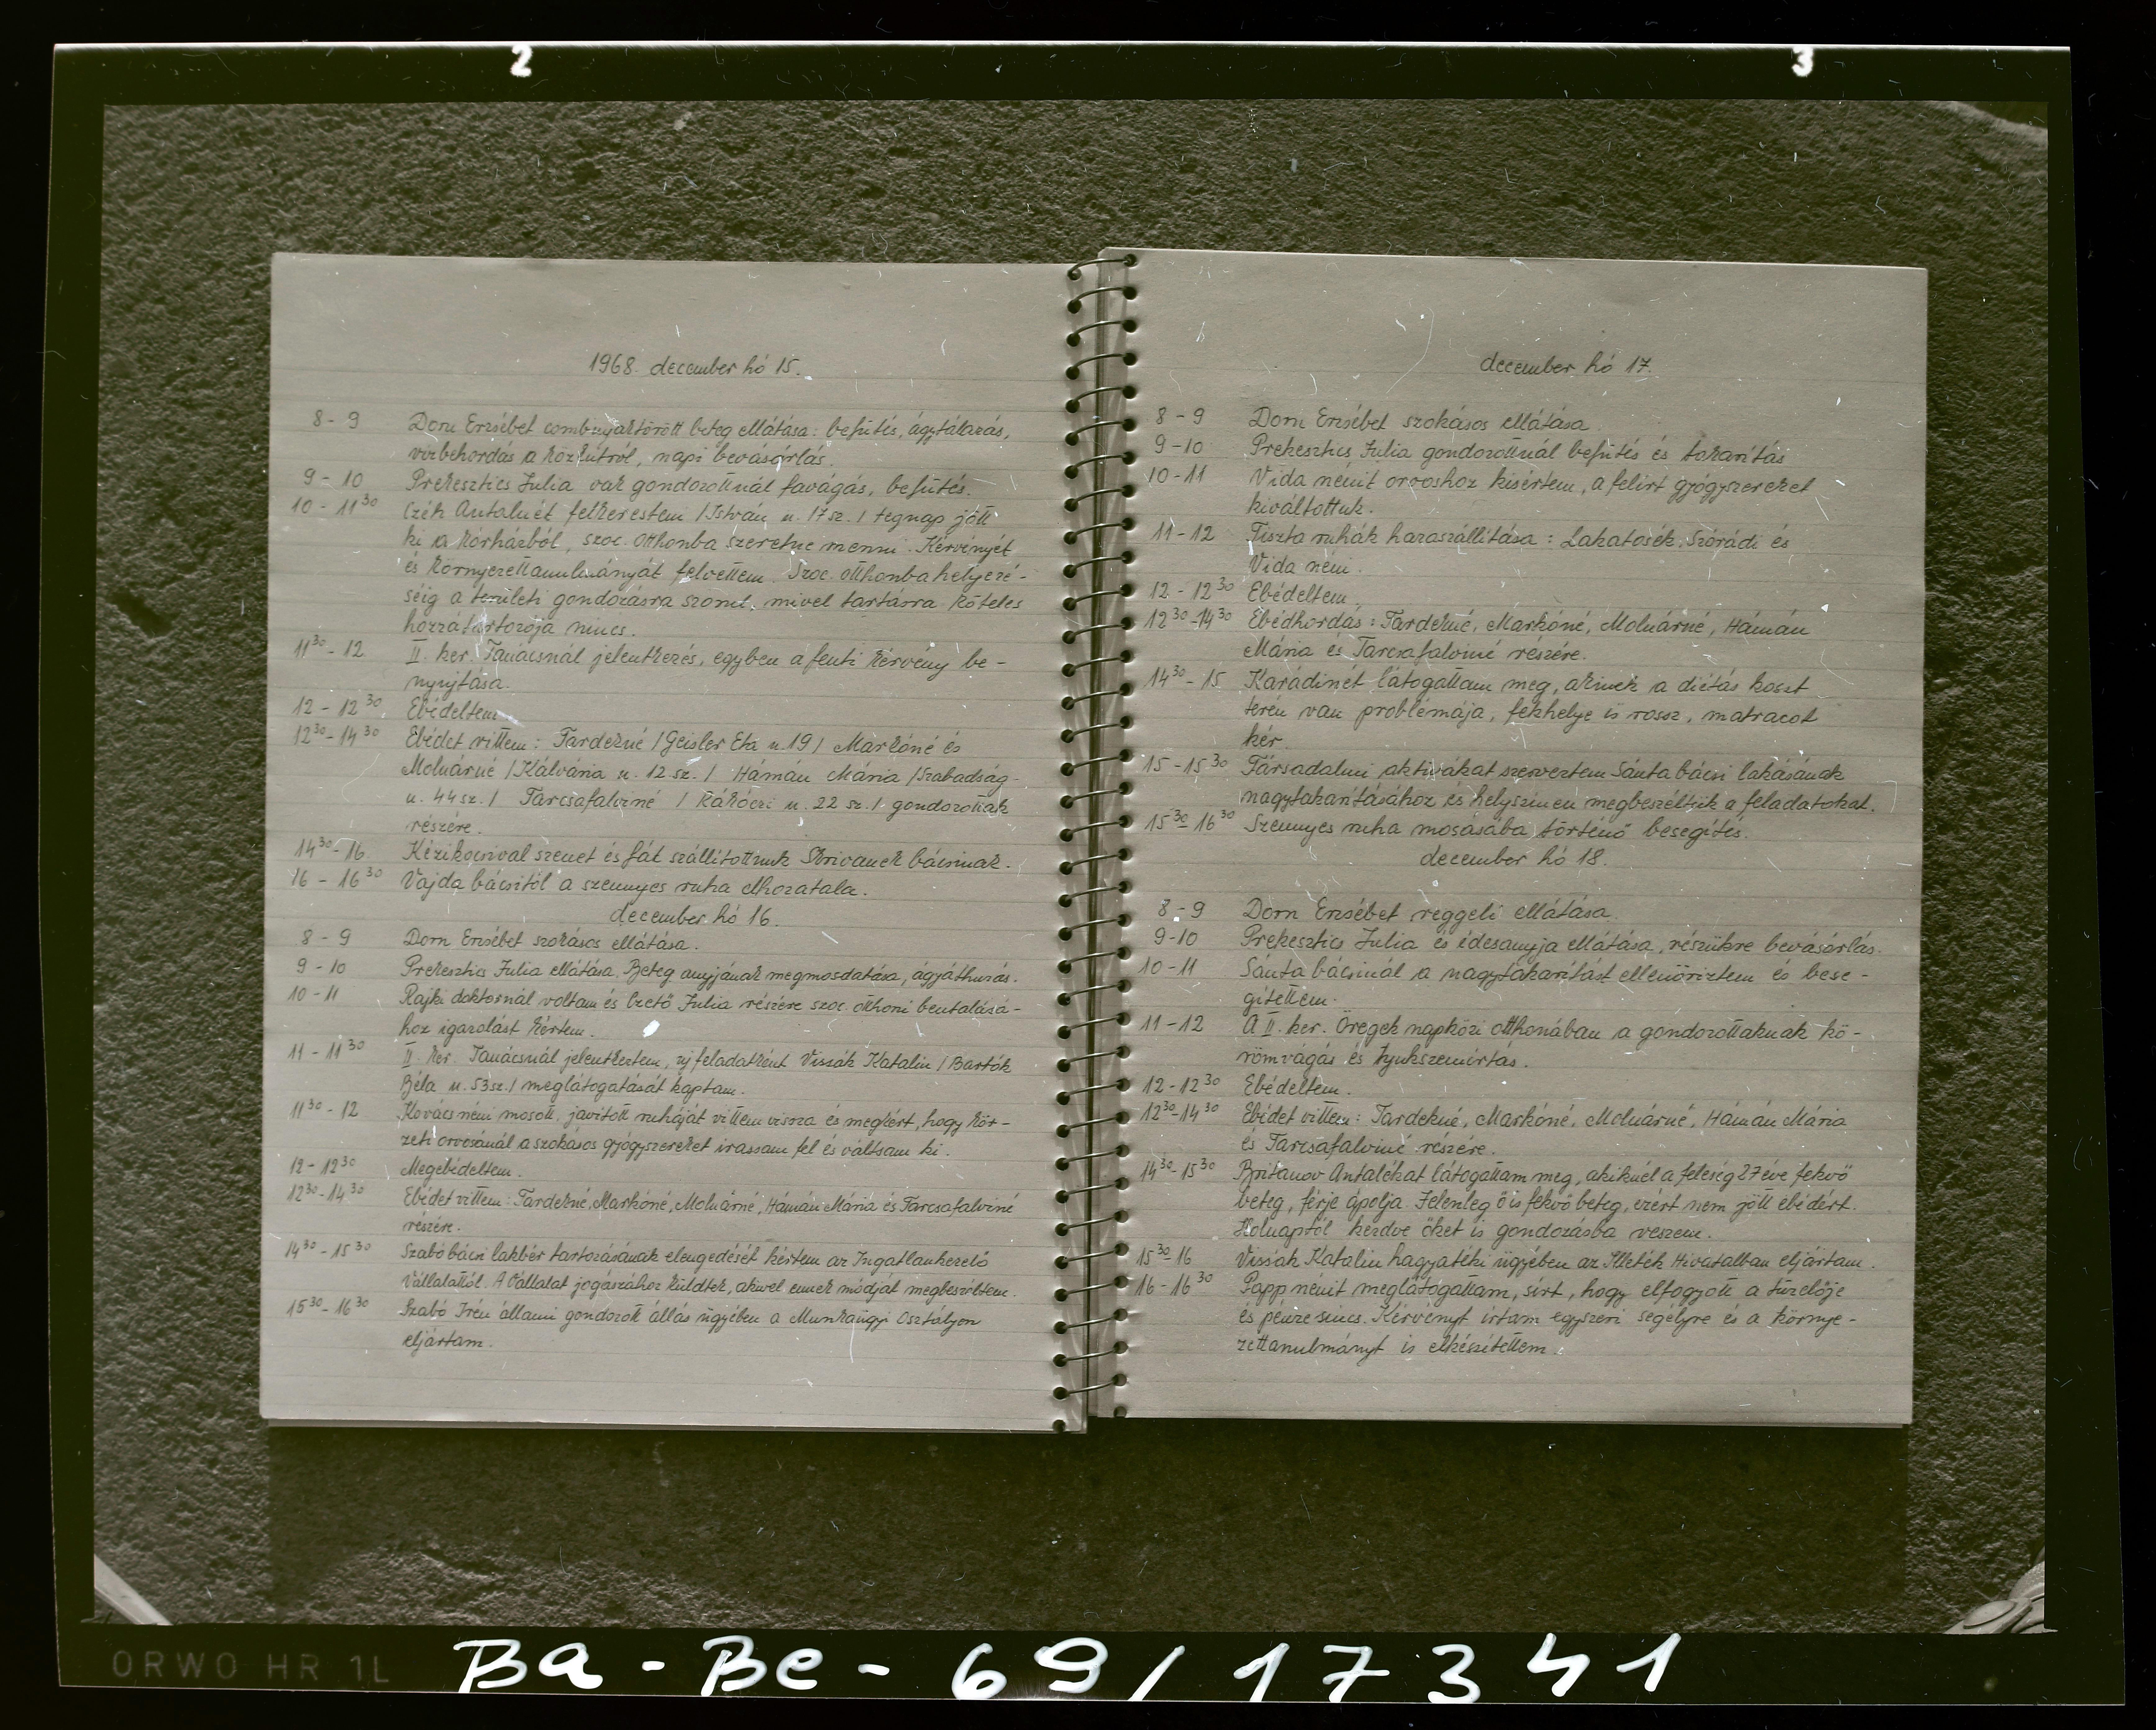 2 3
1968. december hó 15.
8 - 9 Dorn Erzsébet combnyaktörött beteg ellátása: befütés, ágytálazás,
vizbehordás a közkútról, napi bevásárlás.
9 - 10 Prekesztics Julia vak gondozottnál favágás, befütés.
10 - 11 30 Czéh Antalnét felkerestem /István u. 17 sz. / tegnap jött
ki a kórházból, szoc. otthonba szeretne menni. Kérvényét
és környezettanulmányát felvettem. Szoc. otthonba helyezé-
séig a területi gondozásra szorul, mivel tartásra köteles
hozzátartozója nincs.
11 30 - 12 II. ker. Tanácsnál jelentkezés, egyben a fenti kérvény be-
nyujtása.
12 - 12 30 Ebédeltem
12 30 - 14 30 Ebédet vittem: Tardekné /Geisler Eta u. 19 / Markóné és
Molnárné /Kálvária u. 12 sz. / Hámán Mária /Szabadság-
u. 44 sz. / Tarcsafalviné / Rákóczi u. 22 sz. / gondozottak
részére.
14 30 - 16 Kézikocsival szenet és fát szállítottunk Skrivanek bácsinak.
16 - 16 30 Vajda bácsitól a szennyes ruha elhozatala.
december hó 16.
8 - 9 Dorn Erzsébet szokásos ellátása.
9 - 10 Prekesztics Julia ellátása. Beteg anyjának megmosdatása, ágyáthuzás.
10 - 11 Rajki doktornál voltam és Czető Julia részére szoc. otthoni beutalásá-
hoz igazolást kértem.
11 - 11 30 II. ker. Tanácsnál jelentkeztem, új feladatként Vissák Katalin / Bartók
Béla u. 53 sz. / meglátogatását kaptam.
11 30 - 12 Kovács néni mosott, javított ruháját vittem vissza és megkért, hogy kör-
zeti orvosánál a szokásos gyógyszereket irassam fel és váltsam ki.
12 - 12 30 Megebédeltem.
12 30 - 14 30 Ebédet vittem: Tardekné, Markóné, Molnárné, Hámán Mária és Tarcsafalviné
részére.
14 30 - 15 30 Szabó bácsi lakbér tartozásának elengedését kértem az Ingatlankezelő
Vállalattól. A Vállalat jogászához küldtek, akivel ennek módját megbeszéltem.
15 30 - 16 30 Szabó Irén állami gondozott állás ügyében a Munkaügyi Osztályon
eljártam.
december hó 17.
8 - 9 Dorn Erzsébet szokásos ellátása.
9 - 10 Prekesztics Julia gondozottnál befütés és takarítás
10 - 11 Vida nénit orvoshoz kisértem, a felirt gyógyszereket
kiváltottuk.
11 - 12 Tiszta ruhák hazaszállítása: Lakatosék, Szórádi és
Vida néni.
12 - 12 30 Ebédeltem
12 30 - 14 30 Ebédhordás: Tardekné, Markóné, Molnárné, Hámán
Mária és Tarcsafalviné részére.
14 30 - 15 Karádinét látogattam meg, akinek a diétás koszt
terén van problémája, fekhelye is rossz, matracot
kér.
15 - 15 30 Társadalmi aktivákat szerveztem Sánta bácsi lakásának
nagytakarításához és helyszinen megbeszéltük a feladatokat.
15 30 - 16 30 Szennyes ruha mosásába történő besegítés.
december hó 18.
8 - 9 Dorn Erzsébet reggeli ellátása.
9 - 10 Prekesztics Julia és édesanyja ellátása, részükre bevásárlás.
10 - 11 Sánta bácsinál a nagytakarítást ellenőriztem és bese-
gítettem.
11 - 12 A II. ker. Öregek napközi otthonában a gondozottaknak kö-
römvágás és tyukszemirtás.
12 - 12 30 Ebédeltem.
12 30 - 14 30 Ebédet vittem: Tardekné, Markóné, Molnárné, Hámán Mária
és Tarcsafalviné részére.
14 30 - 15 30 Britanov Antalékat látogattam meg, akiknél a feleség 27 éve fekvő
beteg, férje ápolja. Jelenleg ő is fekvő beteg, ezért nem jött ebédért.
Holnaptól kezdve őket is gondozásba veszem.
15 30 - 16 Vissák Katalin hagyatéki ügyében az Illeték Hivatalban eljártam.
16 - 16 30 Papp nénit meglátogattam, sirt, hogy elfogyott a tüzelője
és pénze sincs. Kérvényt irtam egyszeri segélyre és a környe-
zettanulmányt is elkészítettem.
ORWO HR 1L Ba - Be - 69 / 17341